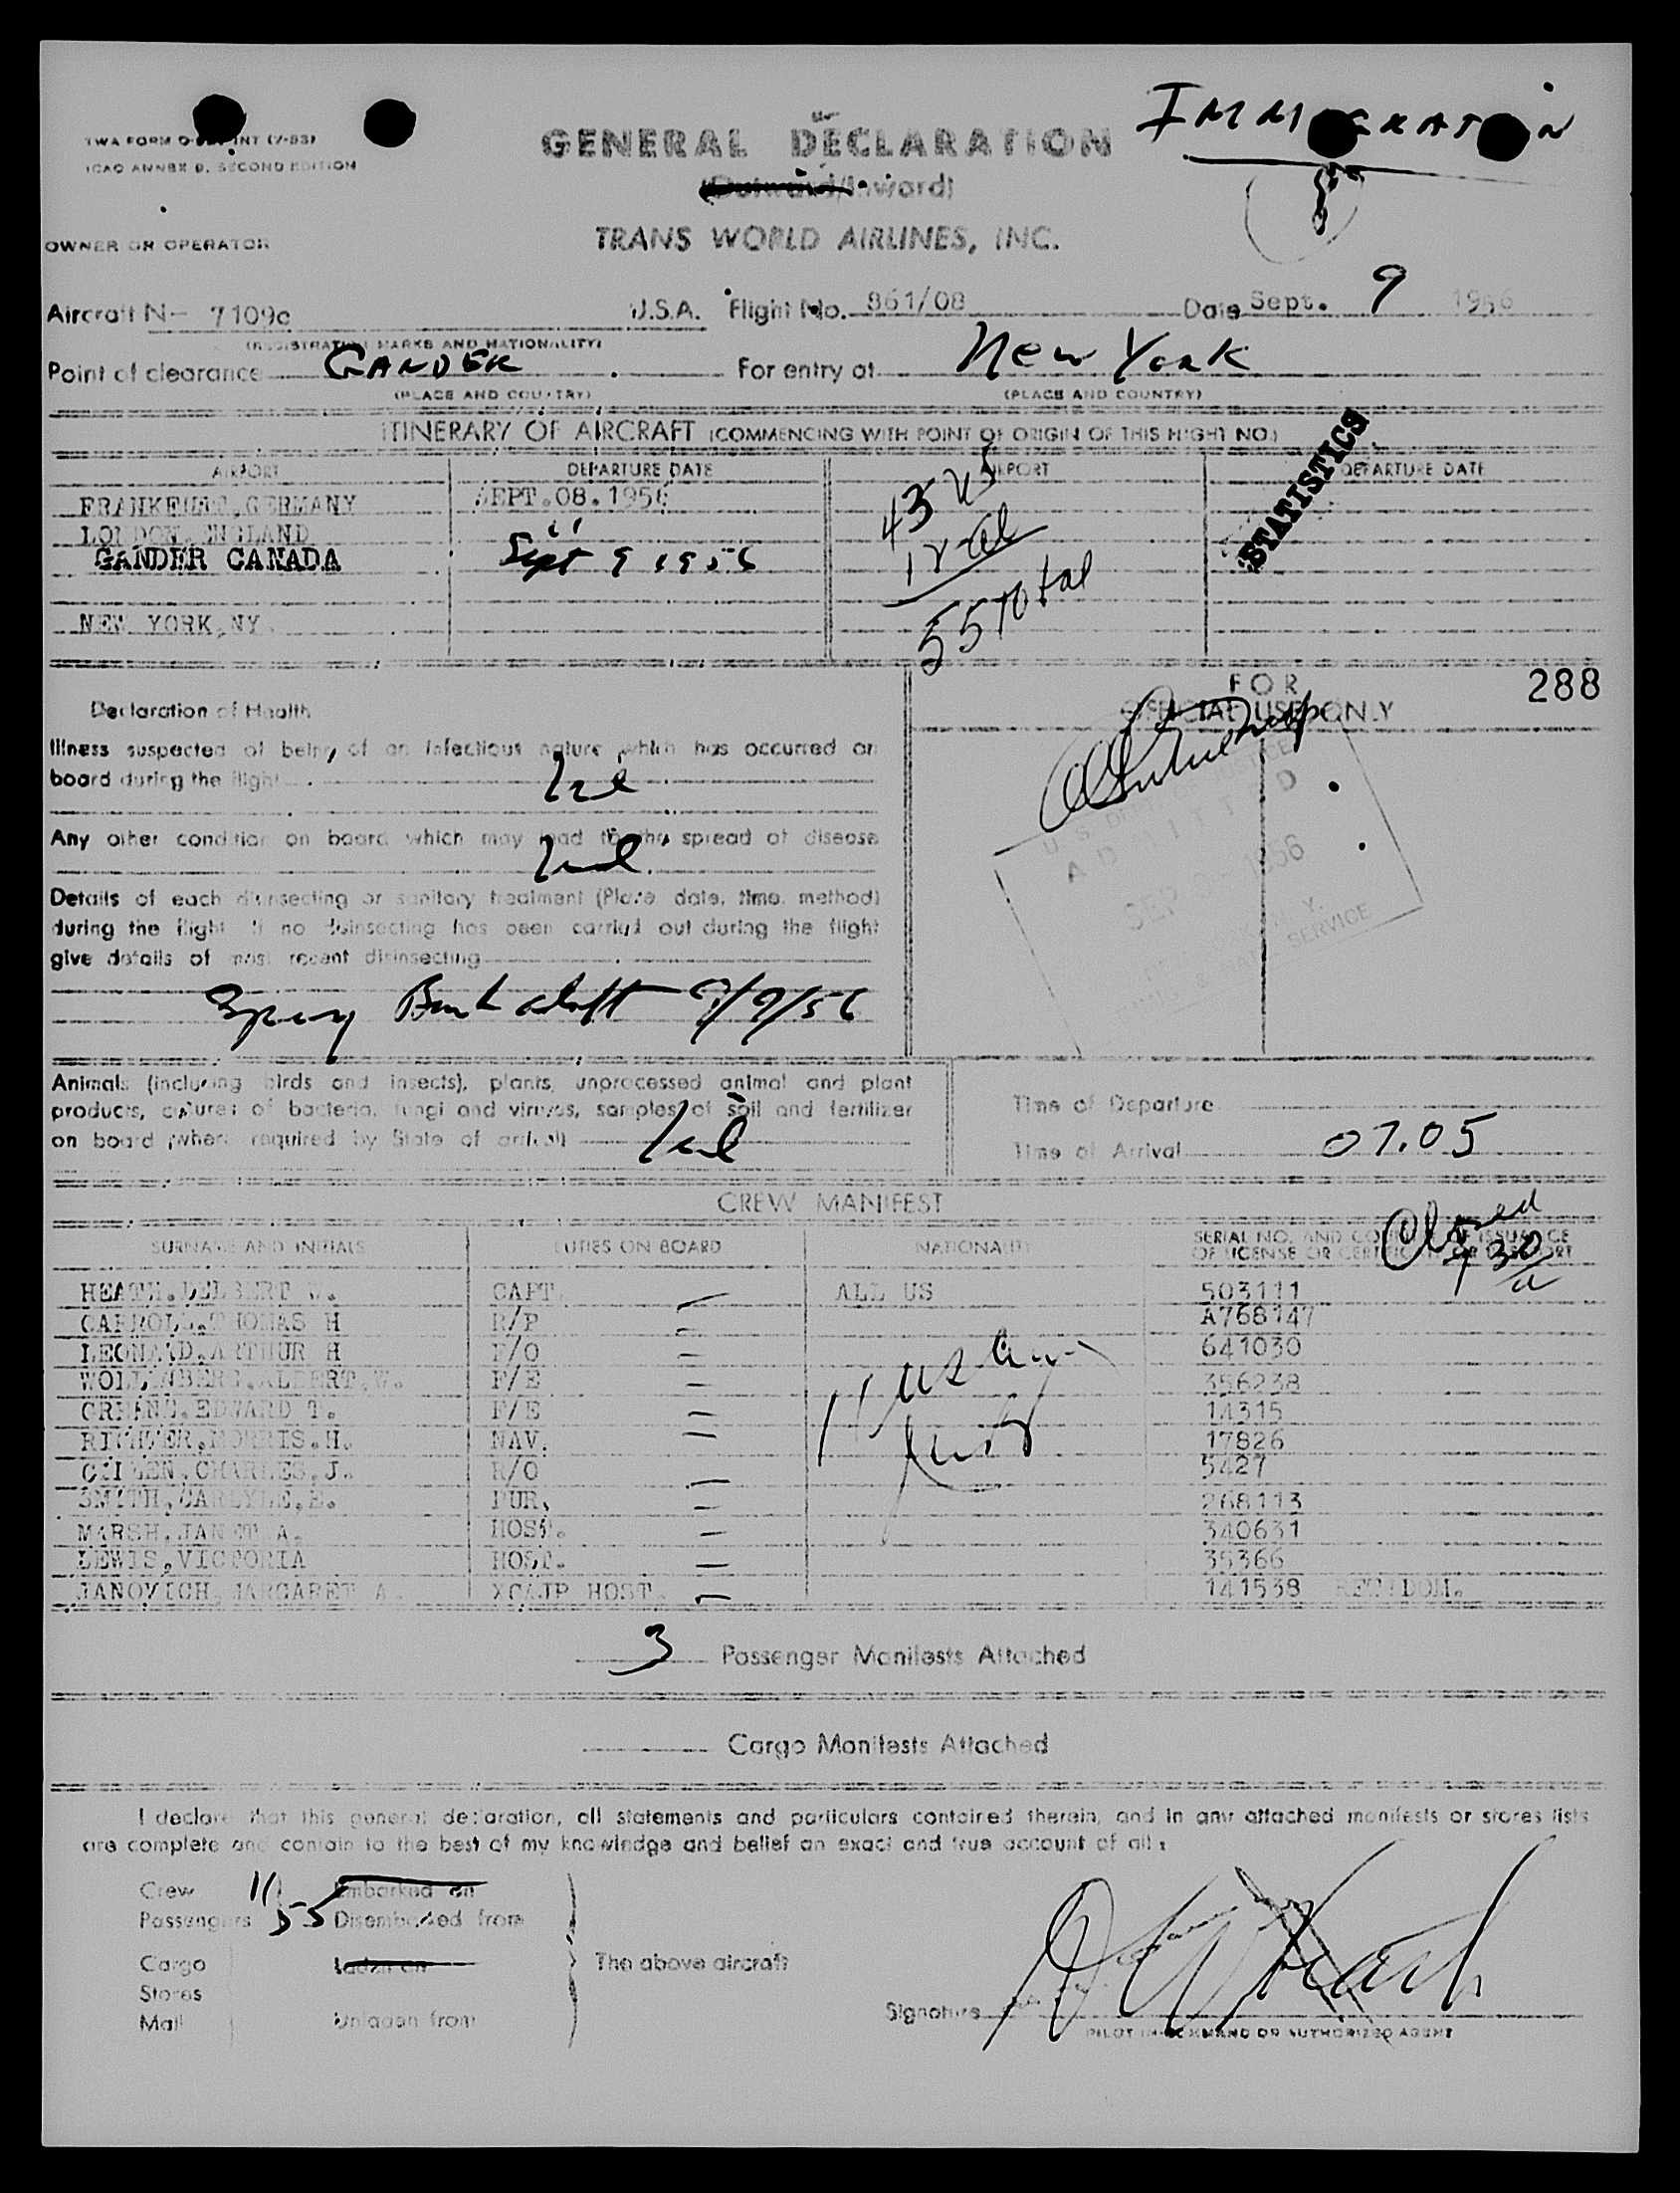 IMMIGRATION
TWA FORM
ICAO ANNEX 9, SECOND EDITION
GENERAL DECLARATION
(Outward/Inward)
OWNER OR OPERATOR
TRANS WORLD AIRLINES, INC.
Aircraft N- 7109c U.S.A. Flight No. 861/08 Date Sept. 9 1956
(REGISTRATION MARKS AND NATIONALITY)
Point of clearance GANDER For entry at New York
(PLACE AND COUNTRY) (PLACE AND COUNTRY)
ITINERARY OF AIRCRAFT (COMMENCING WITH POINT OF ORIGIN OF THIS FLIGHT NO.)
AIRPORT DEPARTURE DATE AIRPORT DEPARTURE DATE
FRANKFURT, GERMANY SEPT.08.1956
LONDON, ENGLAND "
GANDER CANADA Sept 9 1956
NEW YORK, NY
43 US
12 al
55 total
STATISTICS
FOR
OFFICIAL USE ONLY
288
ADMITTED
SERVICE
Declaration of Health
Illness suspected of being of an infectious nature which has occurred on
board during the flight Nil
Any other condition on board which may lead to the spread of disease
Nil
Details of each disinsecting or sanitary treatment (Place, date, time, method)
during the flight. If no disinsecting has been carried out during the flight
give details of most recent disinsecting
Spray 9/9/56
Animals (including birds and insects), plants, unprocessed animal and plant
products, cultures of bacteria, fungi and viruses, samples of soil and fertilizer
on board (when required by State of arrival) Nil
Time of Departure
Time of Arrival 07.05
CREW MANIFEST
SURNAME AND INITIALS DUTIES ON BOARD NATIONALITY SERIAL NO. AND COUNTRY OF ISSUANCE
OF LICENSE OR CERTIFICATE OR PASSPORT
HEATH, DELBERT W. CAPT. ALL US 503111
CARROLL, THOMAS H R/P A768147
LEONARD, ARTHUR H F/O 641030
WOLLENBERG, ALBERT, W. F/E 356238
EDWARD T. F/E 14315
RICHTER, MORRIS, H. NAV. 17826
CHARLES, J. R/O 5427
SMITH, CARLYLE, E. PUR. 268113
MARSH, JANET A. HOST. 340631
LEWIS, VICTORIA HOST. 35366
JANOVICH, MARGARET A. HOST. 141538
3 Passenger Manifests Attached
Cargo Manifests Attached
I declare that this general declaration, all statements and particulars contained therein, and in any attached manifests or stores lists
are complete and contain to the best of my knowledge and belief an exact and true account of all:
Crew 11 Embarked on
Passengers 55 Disembarked from
Cargo Laden on The above aircraft
Stores
Mail Unladen from
Signature D W Heath
PILOT IN COMMAND OR AUTHORIZED AGENT